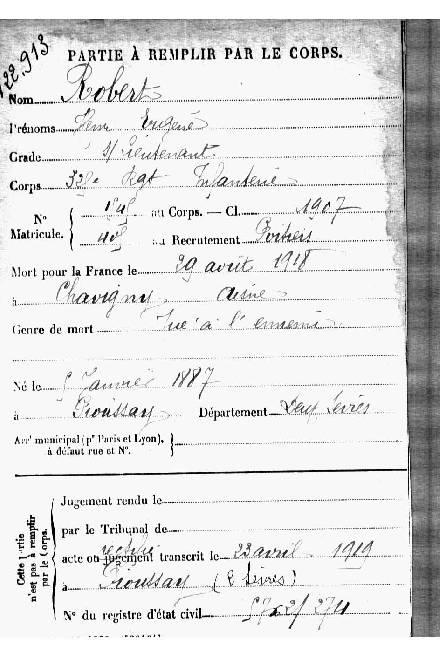 122.913
PARTIE À REMPLIR PAR LE CORPS.
Nom Robert
Prénoms Henri Eugène
Grade S/Lieutenant
Corps Rgt Infanterie
N° Matricule. au Corps. — Cl. 1907
au Recrutement Poitiers
Mort pour la France le 29 août 1918
à Chavigny Aisne
Genre de mort Tué à l'ennemi
Né le Janvier 1887
à Pioussay Département Deux Sèvres
Arrt municipal (pr Paris et Lyon),
à défaut rue et N°.
Cette partie n'est pas à remplir par le Corps.
Jugement rendu le
par le Tribunal de
acte ou jugement transcrit le 23 avril 1919
à Pioussay (2 Sèvres)
N° du registre d'état civil